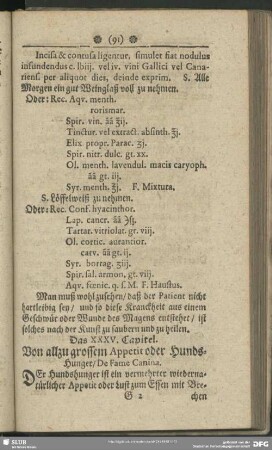 (91)
Incisa & contusa ligentur, simulet fiat nodulus
infundendus c. lbiij. vel iv. vini Gallici vel Cana-
riens. per aliquot dies, deinde exprim. S. Alle
Morgen ein gut Weinglaß voll zu nehmen.
Oder: Rec. Aqv. menth.
rorismar.
Spir. vin. āā ℥ij.
Tinctur. vel extract. absinth. ℥j.
Elix propr. Parac. ʒj.
Spir. nitr. dulc. gt. xx.
Ol. menth. lavendul. macis caryoph.
āā gt. iij.
Syr. menth. ℥j. F. Mixtura.
S. Löffelweiß zu nehmen.
Oder: Rec. Conf. hyacinthor.
Lap. cancr. āā ℈ß.
Tartar. vitriolat. gr. viij.
Ol. cortic. aurantior.
carv. āā gt. ij.
Syr. borrag. ʒiij.
Spir. sal. armon. gt. viij.
Aqv. fœnic. q. s. M. F. Haustus.
Man muß wohl zusehen/ daß der Patient nicht
hartleibig sey/ und so diese Kranckheit aus einem
Geschwür oder Wunde des Magens entstehet/ ist
solches nach der Kunst zu saubern und zu heilen.
Das XXXV. Capitel.
Von allzu grossem Appetit oder Hunds-
Hunger/ De Fame Canina.
DEr Hundshunger ist ein vermehrter wiederna-
türlicher Appetit oder Lust zum Essen mit Bre-
G 2 chen
SLUB